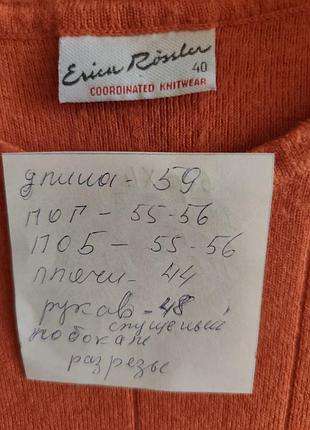 Erica Rössler
40
COORDINATED KNITWEAR
длина - 59
ПОГ - 55-56
ПОБ - 55-56
плечи - 44
рукав - 48
спущеный
по бокам
разрезы